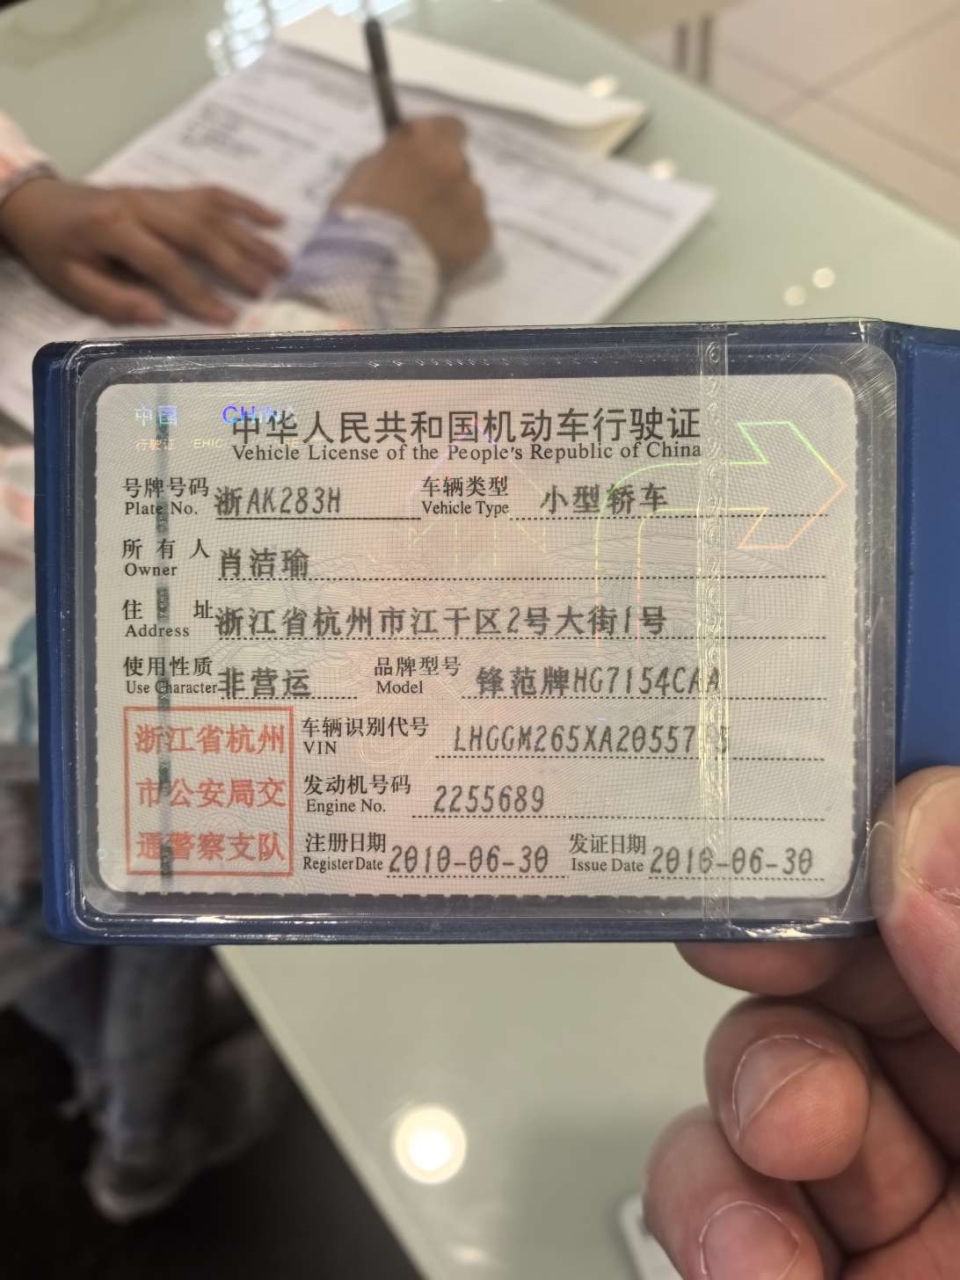 中国 CHINA
中华人民共和国机动车行驶证
Vehicle License of the People's Republic of China
号牌号码 浙AK283H 车辆类型 小型轿车
Plate No. Vehicle Type
所有人 肖洁瑜
Owner
住址 浙江省杭州市江干区2号大街1号
Address
使用性质 非营运 品牌型号 锋范牌HG7154CAA
Use Character Model
浙江省杭州
市公安局交
通警察支队
车辆识别代号
VIN
发动机号码 2255689
Engine No.
注册日期 2010-06-30 发证日期 2010-06-30
Register Date Issue Date